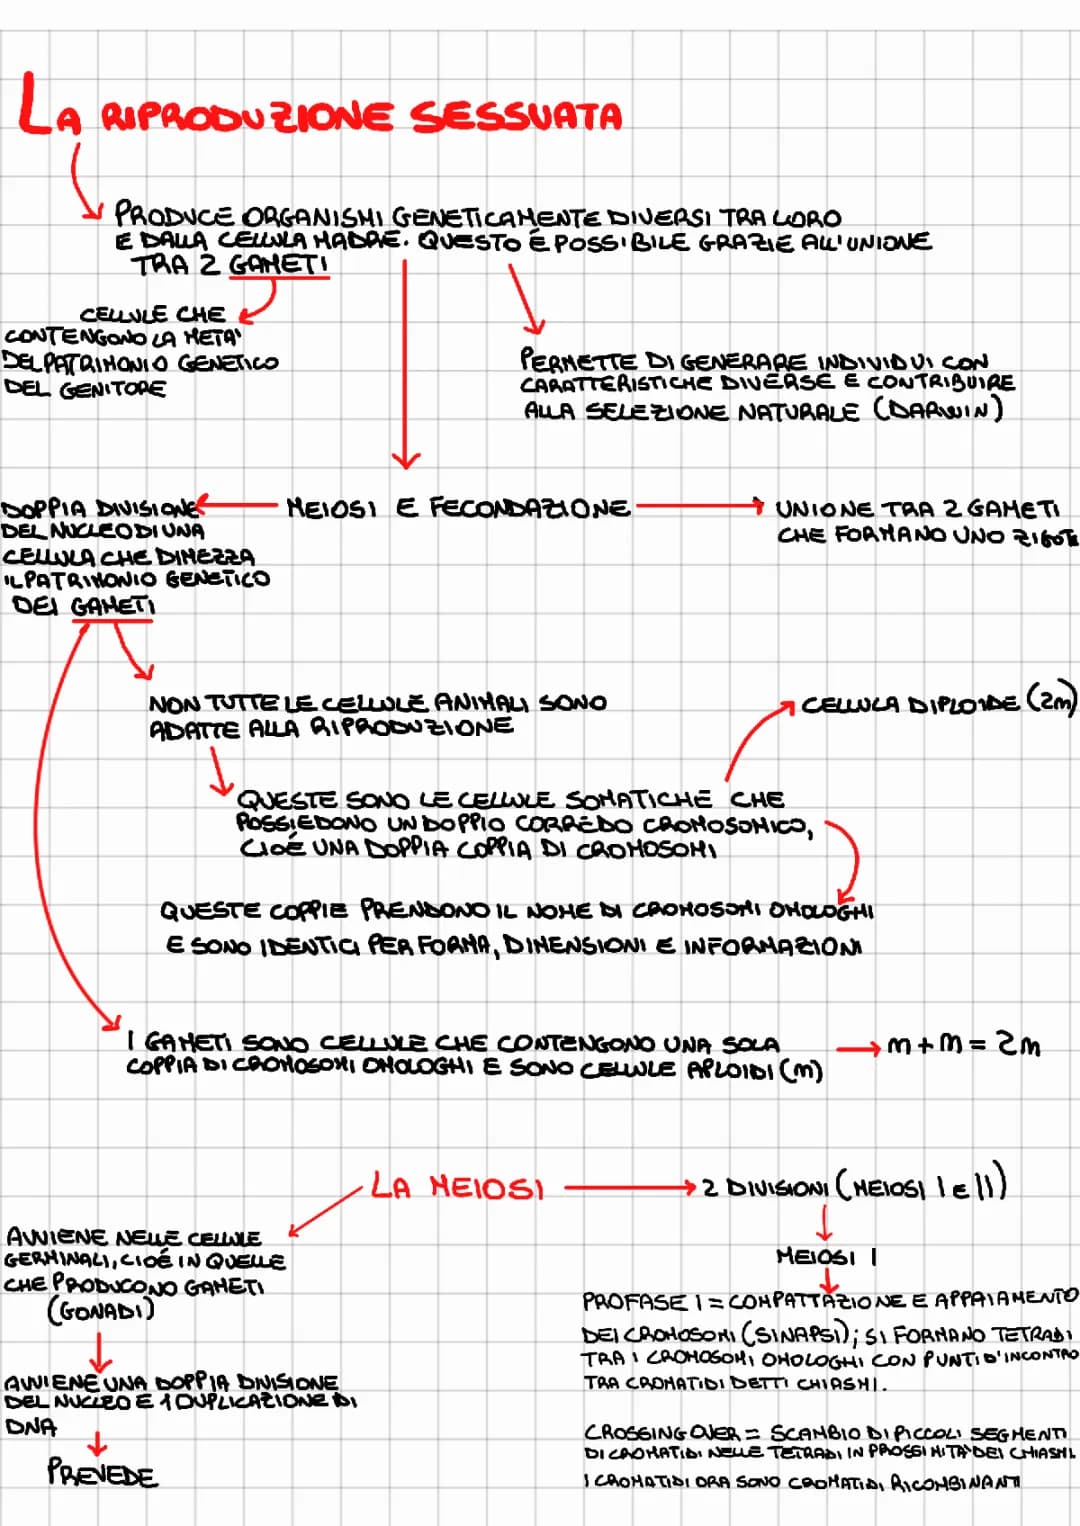 LA RIPRODUZIONE SESSUATA
PRODUCE ORGANISMI GENETICAMENTE DIVERSI TRA LORO
E DALLA CELLULA MADRE. QUESTO É POSSIBILE GRAZIE ALL'UNIONE
TRA 2 GAMETI
CELLULE CHE
CONTENGONO LA METÀ
DEL PATRIMONIO GENETICO
DEL GENITORE
PERMETTE DI GENERARE INDIVIDUI CON
CARATTERISTICHE DIVERSE E CONTRIBUIRE
ALLA SELEZIONE NATURALE (DARWIN)
DOPPIA DIVISIONE
DEL NUCLEO DI UNA
CELLULA CHE DIMEZZA
IL PATRIMONIO GENETICO
DEI GAMETI
MEIOSI E FECONDAZIONE
UNIONE TRA 2 GAMETI
CHE FORMANO UNO ZIGOTE
NON TUTTE LE CELLULE ANIMALI SONO
ADATTE ALLA RIPRODUZIONE
CELLULA DIPLOIDE (2m)
QUESTE SONO LE CELLULE SOMATICHE CHE
POSSIEDONO UN DOPPIO CORREDO CROMOSOMICO,
CIOÉ UNA DOPPIA COPPIA DI CROMOSOMI
QUESTE COPPIE PRENDONO IL NOME DI CROMOSOMI OMOLOGHI
E SONO IDENTICI PER FORMA, DIMENSIONI E INFORMAZIONI
I GAMETI SONO CELLULE CHE CONTENGONO UNA SOLA
COPPIA DI CROMOSOMI OMOLOGHI E SONO CELLULE APLOIDI (m)
m + m = 2m
LA MEIOSI
2 DIVISIONI (MEIOSI I E II)
AVVIENE NELLE CELLULE
GERMINALI, CIOÉ IN QUELLE
CHE PRODUCONO GAMETI
(GONADI)
AVVIENE UNA DOPPIA DIVISIONE
DEL NUCLEO E 1 DUPLICAZIONE DI
DNA
PREVEDE
MEIOSI I
PROFASE I = COMPATTAZIONE E APPAIAMENTO
DEI CROMOSOMI (SINAPSI); SI FORMANO TETRADI
TRA I CROMOSOMI OMOLOGHI CON PUNTI D'INCONTRO
TRA CROMATIDI DETTI CHIASMI.
CROSSING OVER = SCAMBIO DI PICCOLI SEGMENTI
DI CROMATIDI NELLE TETRADI IN PROSSIMITÀ DEI CHIASMI.
I CROMATIDI ORA SONO CROMATIDI RICOMBINANTI